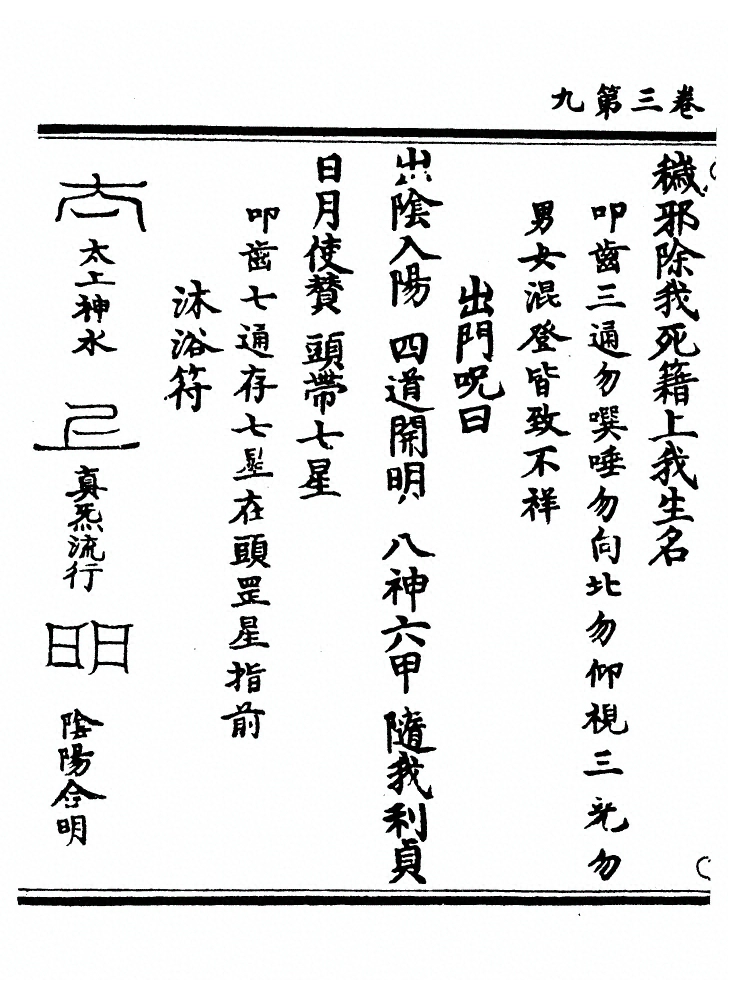 九第三卷
穢邪除我死籍上我生名
叩齒三通勿噀唾勿向北勿仰視三光勿
男女混登皆致不祥
出門呪曰
出陰入陽 四道開明 八神六甲 隨我利貞
日月使贊 頭帶七星
叩齒七通存七星在頭罡星指前
沐浴符
太上神水
真炁流行
陰陽合明